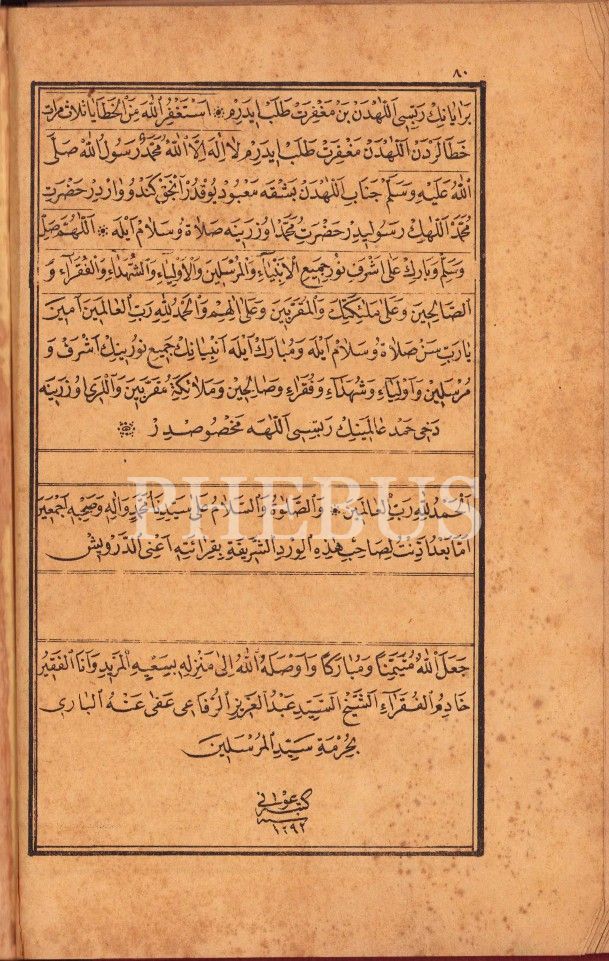 ٨٠
برايانك ربسى اللهدن بن مغفرت طلب ايدرم * استغفر الله من الخطايا ثلاث مرات
خطالردن اللهدن مغفرت طلب ايدرم لا اله الا الله محمد رسول الله صلى
الله عليه وسلم جناب اللهدن بشقه معبود يوقدر انجق كندو واردر حضرت
محمد اللهك رسوليدر حضرت محمد اوزرينه صلاة وسلام ايله * اللهم صل
وسلم وبارك على اشرف نور جميع الانبياء والمرسلين والاولياء والشهداء والفقراء و
الصالحين وعلى ملائكتك والمقربين وعلى الهم والحمد لله رب العالمين امين
يارب سن صلاة وسلام ايله ومبارك ايله انبيانك جميع نورينك اشرف و
مرسلين واولياء وشهداء وفقراء وصالحين وملائكة مقربين واللرى اوزرينه
دخى حمد عالمينك ربسى اللهه مخصوصدر
PHEBUS
الحمد لله رب العالمين * والصلوة والسلام على سيدنا محمد واله وصحبه اجمعين
اما بعد اذنت لصاحب هذه الورد الشريفة بقرائته اعنى الدرويش
جعل الله متيمنا ومباركا واوصله الله الى منزله بسعيه المريد وانا الفقير
خادم الفقراء الشيخ السيد عبد العزيز الرفاعى عفى عنه البارى
بحرمة سيد المرسلين
كتبه
سنه
١٢٩٢